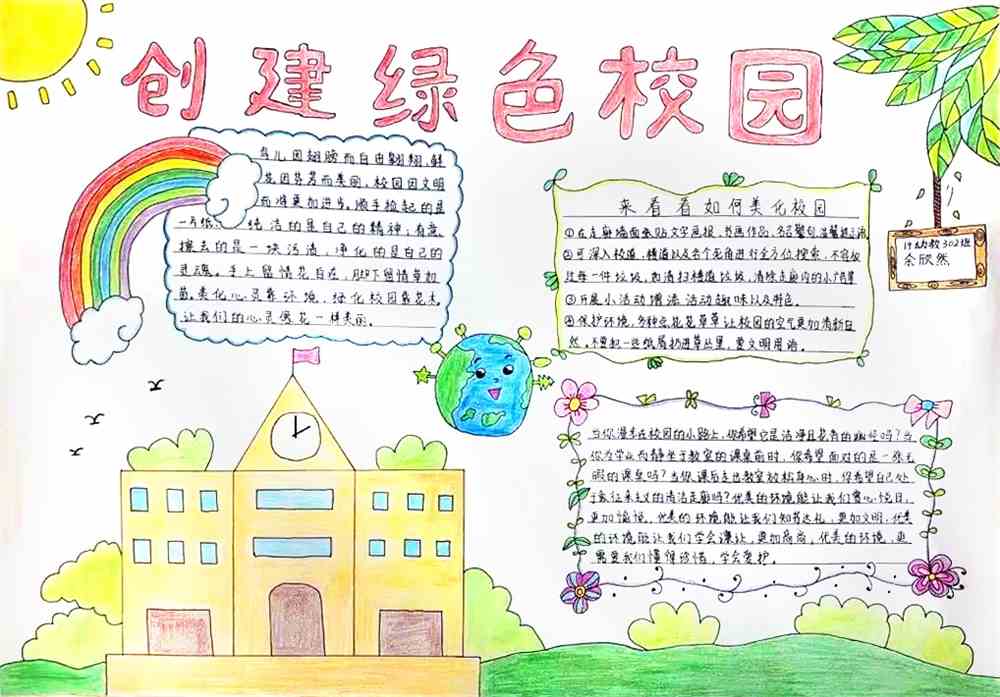 创建绿色校园
鸟儿因翅膀而自由翱翔,鲜
花因芬芳而美丽,校园因文明
而将更加进步。顺手捡起的是
一片纸,纯洁的是自己的精神,有意
擦去的是一块污渍,净化的是自己的
灵魂。手上留情花自在,脚下留情草如
茵。美化心灵靠环境,绿化校园靠花木,
让我们的心灵像花一样美丽。
来看看如何美化校园
①在走廊墙面张贴文字画报、书画作品、名言警句、温馨提示语
②可深入校道、楼道以及各个死角进行全方位搜索,不容放
过每一件垃圾,西清扫楼道垃圾,清除走廊内的小广告等
③开展小活动增添活动趣味以及特色。
④保护环境,多种点花花草草让校园的空气更加清新自
然,不要把一些纸屑扔进草丛里,要文明用语。
19幼教302班
余欣然
当你漫步在校园的小路上,你希望它是洁净且花香的幽径吗?当
你为学业而静坐于教室的课桌前时,你希望面对的是一张无
暇的课桌吗?当你课后走出教室放松身心时,你希望自己处
于征来纹的清洁走廊吗?优美的环境能让我们赏心悦目,
更加愉悦。优美的环境能让我们知书达礼,更加文明,优美
的环境能让我们学会谦让,更加高尚。优美的环境,更
需要我们懂得珍惜,学会爱护。